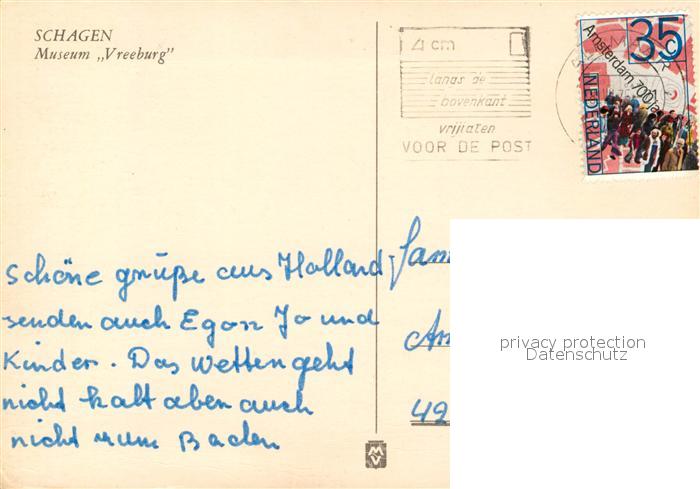 SCHAGEN
Museum „Vreeburg”
4 cm
langs de
bovenkant
vrijlaten
VOOR DE POST
35 c
Amsterdam 700
NEDERLAND
Schöne grüße aus Holland
senden auch Egon Jo und
Kinder. Das Wetten geht
nicht kalt aben auch
nicht zum Baden
Fam
Am
49
privacy protection
Datenschutz
MV